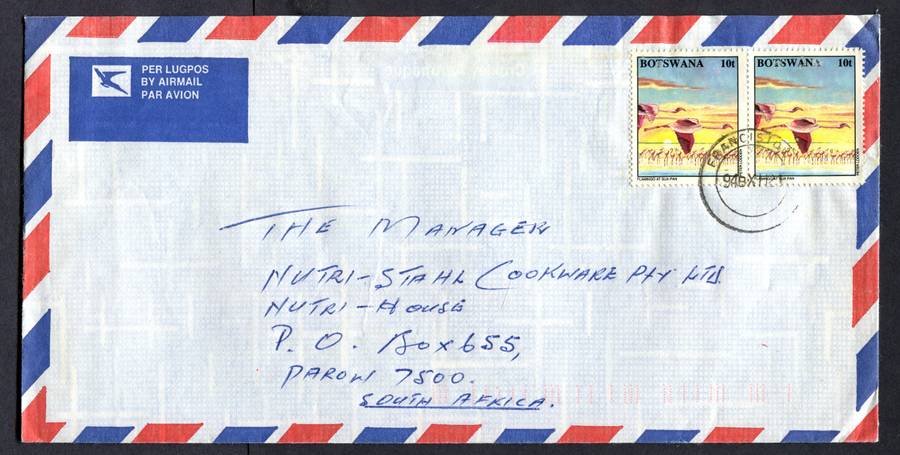 PER LUGPOS
BY AIRMAIL
PAR AVION
BOTSWANA 10t
BOTSWANA 10t
FLAMINGO AT SUA PAN
FLAMINGO AT SUA PAN
THE MANAGER
NUTRI-STAHL COOKWARE PTY LTD.
NUTRI-HOUSE
P. O. BOX 655,
PAROW 7500.
SOUTH AFRICA.